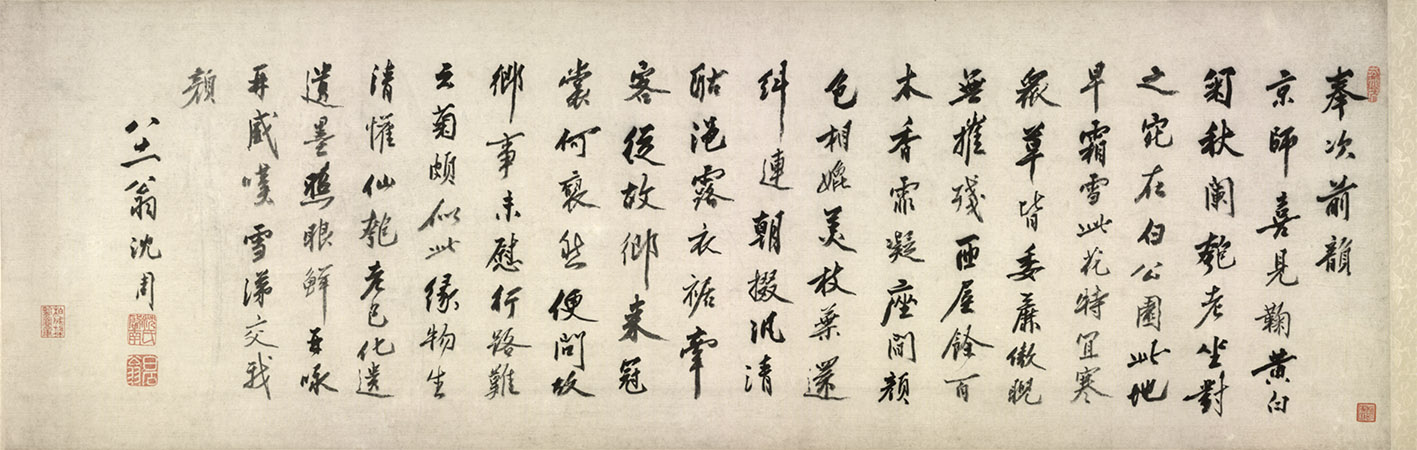 奉次前韻
京師喜見鞠黃白
匊秋闌匏老坐對
之宛在白公園此地
早霜雪此花特宜寒
眾草皆委靡傲睨
無摧殘西屋餘百
本香霏凝座間顏
色相媲美枝葉還
糾連朝掇汎清
酤浥露衣裾牽
客從故鄉來冠
裳何褎然便問故
鄉事未慰行路難
云菊頗似此緣物生
清懽仙匏老已化遺
遺墨照眼鮮再咏
再感嘆雪涕交我
顏
八十二翁沈周